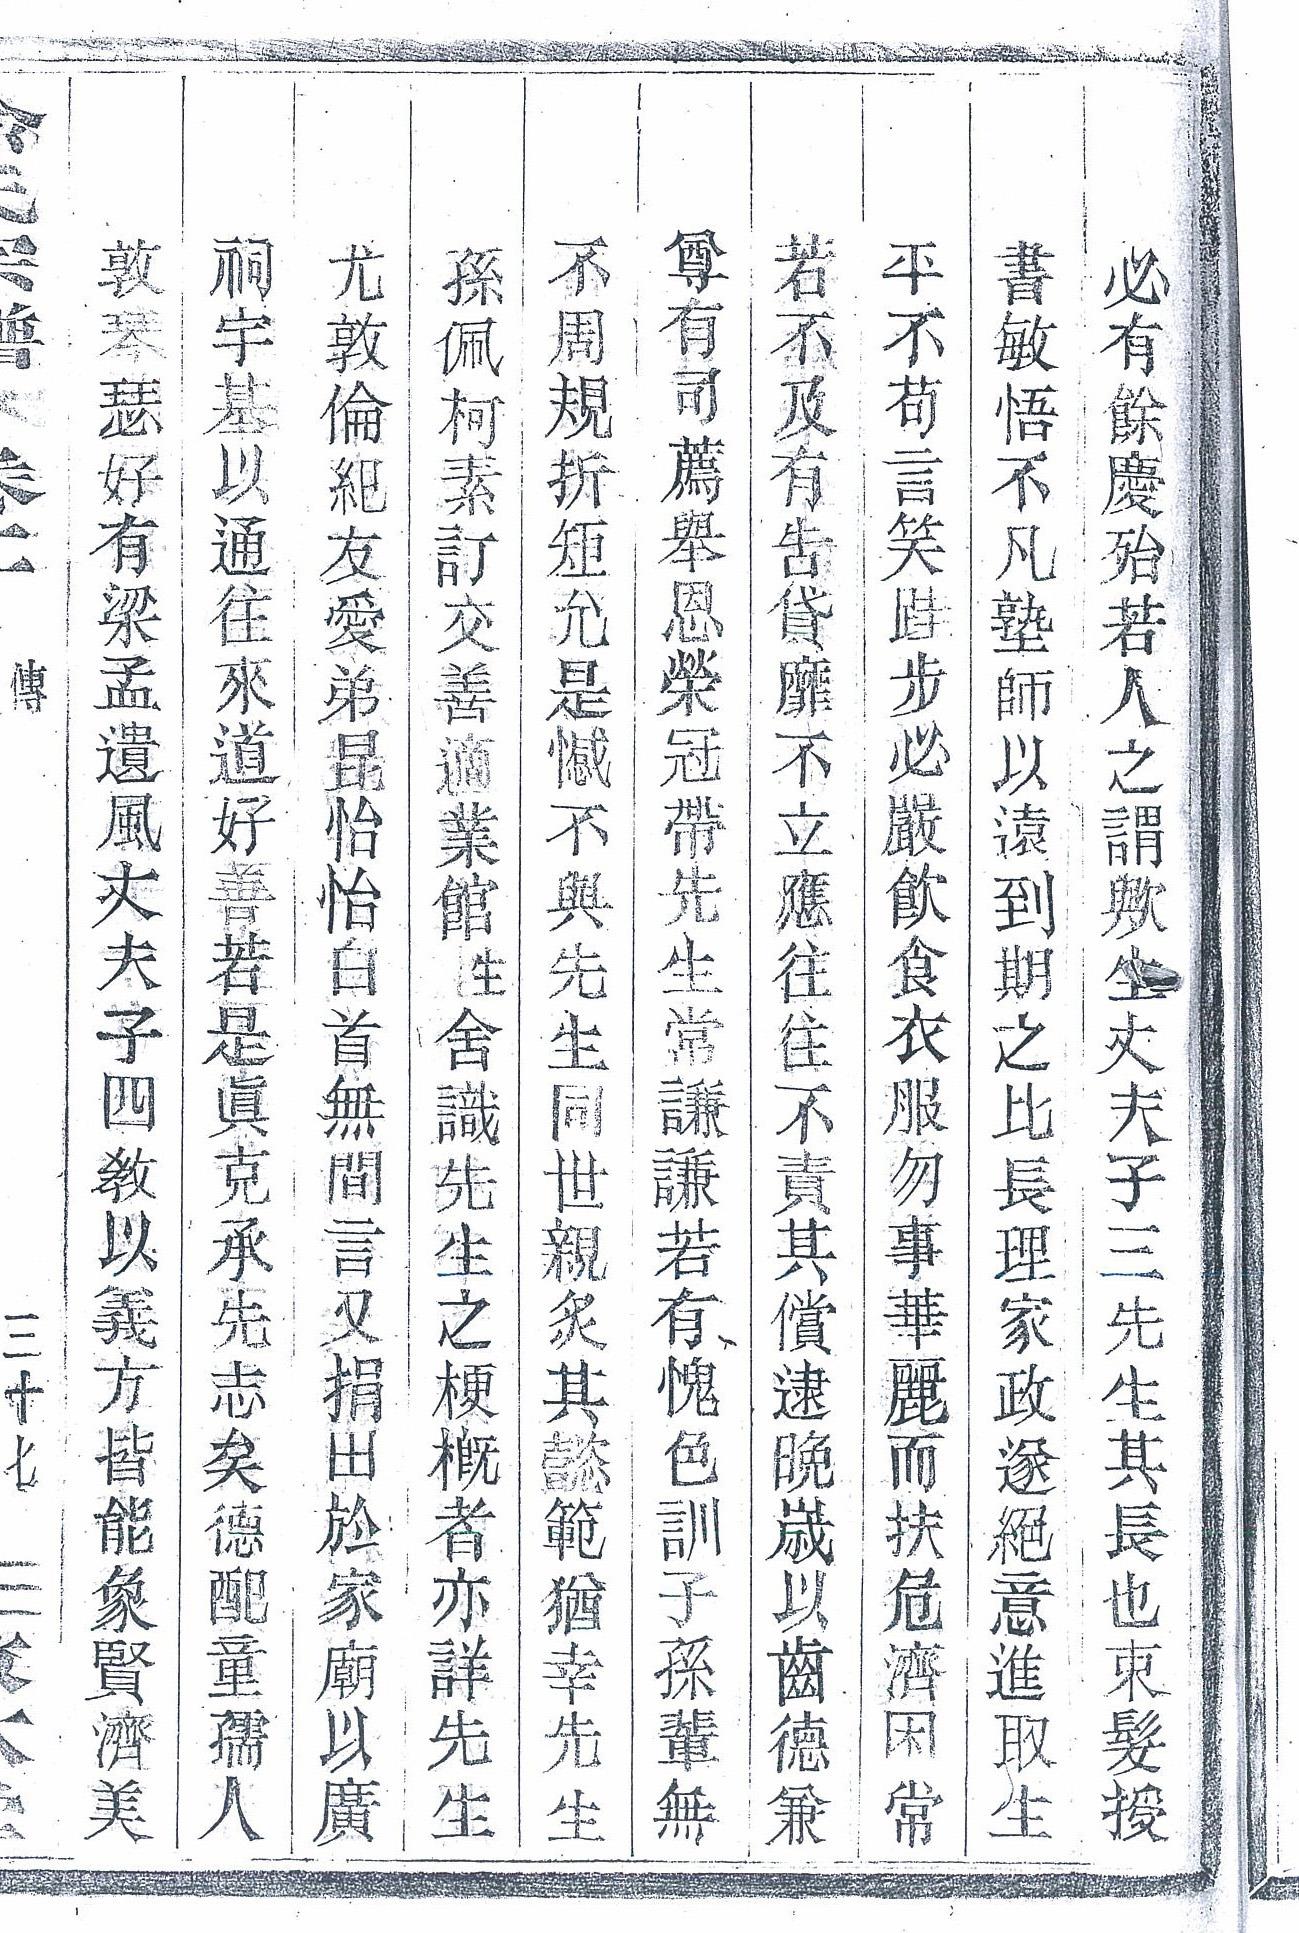 必有餘慶殆若人之謂歟生丈夫子三先生其長也束髮授
書敏悟不凡塾師以遠到期之比長理家政遂絕意進取生
平不苟言笑跬步必嚴飲食衣服勿事華麗而扶危濟困常
若不及有告貸靡不立應往往不責其償逮晚歲以齒德兼
尊有司薦舉恩榮冠帶先生常謙謙若有愧色訓子孫輩無
不周規折矩允是憾不與先生同世親炙其懿範猶幸先生
孫佩柯素訂交善適業館性舍識先生之梗概者亦詳先生
尤敦倫紀友愛弟昆怡怡白首無間言又捐田於家廟以廣
祠宇基以通往來道好善若是眞克承先志矣德配童孺人
敦琴瑟好有梁孟遺風丈夫子四教以義方皆能象賢濟美
氏宗譜 卷二 傳 三十七